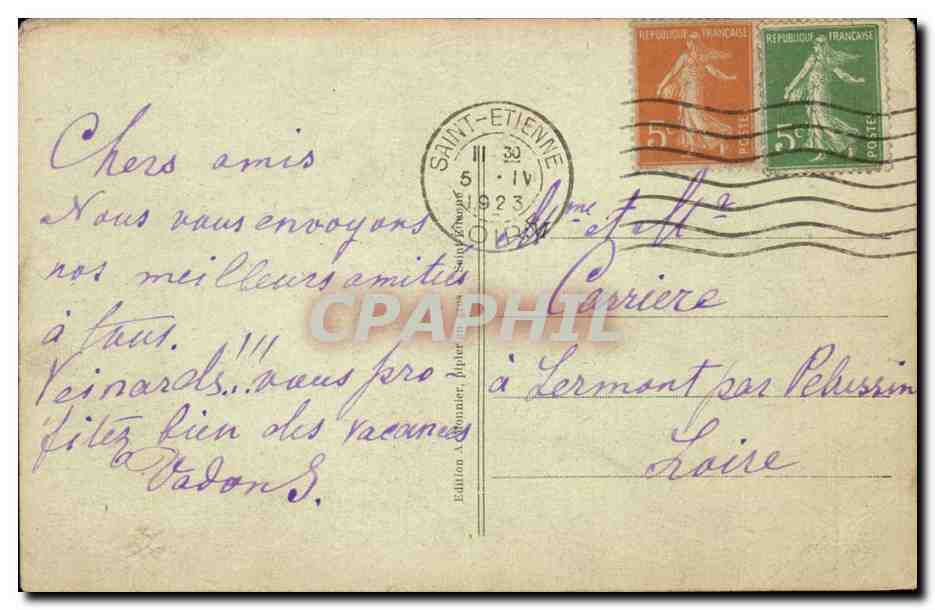 Chers amis
Nous vous envoyons
nos meilleurs amitiés
à tous.
Veinards!!!!! vous pro-
fitez bien des vacances
VadonS.
REPUBLIQUE FRANÇAISE
5c
POSTES
REPUBLIQUE FRANÇAISE
5c
POSTES
SAINT-ETIENNE
III 30
5 · IV
1923
LOIRE
Mme et Mr
Carriere
à Lermont par Pelussin
Loire
Edition A. tonnier, Saint-
CPAPHIL